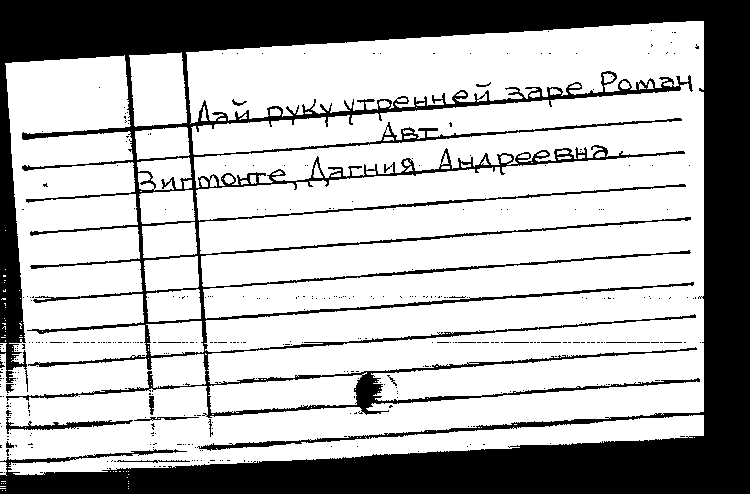 Дай руку утренней заре. Роман.
Авт.:
Зигмонте, Дагния Андреевна.